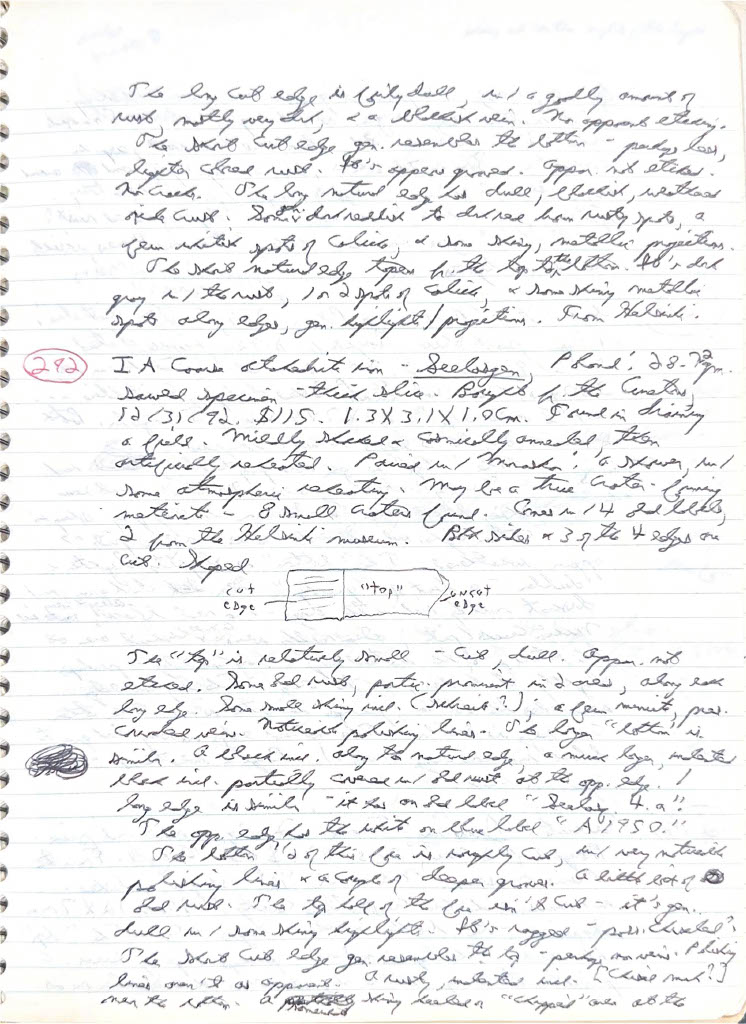 The long cut edge is fairly dull, w/ a goodly amount of
rust, mostly very dark, & a blackish vein. No apparent etching.
The short cut edge gen. resembles the bottom - perhaps less,
lighter colored rust. It's appears grooved. Appar. not etched.
No cracks. The long natural edge has dull, blackish, weathered
oxide crust. Some dark reddish to dark red brown rusty spots, a
few whitish spots of caliche, & some shiny, metallic projections.
The short natural edge tapers fr. the top to the bottom. It's dark
gray w/ the rust, 1 or 2 spots of caliche, & some shiny metallic
spots along edges, gen. highlights/projections. From Helsinki.
292 IA Coarse octahedrite iron - Seelasgen, Poland. 28.72 gm.
sawed specimen - thick slice. Bought fr. the
12/31/92, $115. 1.3 X 3.1 X 1.0 cm. Found in draining
a field. Mildly shocked & cosmically annealed, then
artificially reheated. Paired w/ "Morasko", a shower, w/
some atmospheric reheating. May be a true crater-forming
meteorite - 8 small craters found. Comes w/ 4 old labels,
2 from the Helsinki museum. Both sides & 3 of the 4 edges are
cut. Shaped
cut edge "top" uncut edge
The "top" is relatively small - cut, dull. Appar. not
etched. Some old rust, partic. prominent in 2 areas, along each
long edge. Some small shiny incl. (schreib.?); a few minute, poss.
vein. Noticeable polishing lines. The larger "bottom" is
similar. A black incl. along the natural edge; a much larger, indented
black incl. partially covered w/ old rust at the opp. edge. 1
long edge is similar - it has an old label "Seelasg. 4.a".
The opp. edge has the white on blue label "A 1950."
The bottom 1/2 of this face is roughly cut, w/ very noticeable
polishing lines & a couple of deeper grooves. A little bit of
old rust. The top half of the face isn't cut - it's gen.
dull w/ some shiny highlights. It's ragged - poss. chiseled?
The short cut edge gen. resembles the top - perhaps no veins. Polishing
lines aren't as apparent. A rusty, indented incl. [Chisel mark?]
near the bottom. A shiny or "chopped" area at the